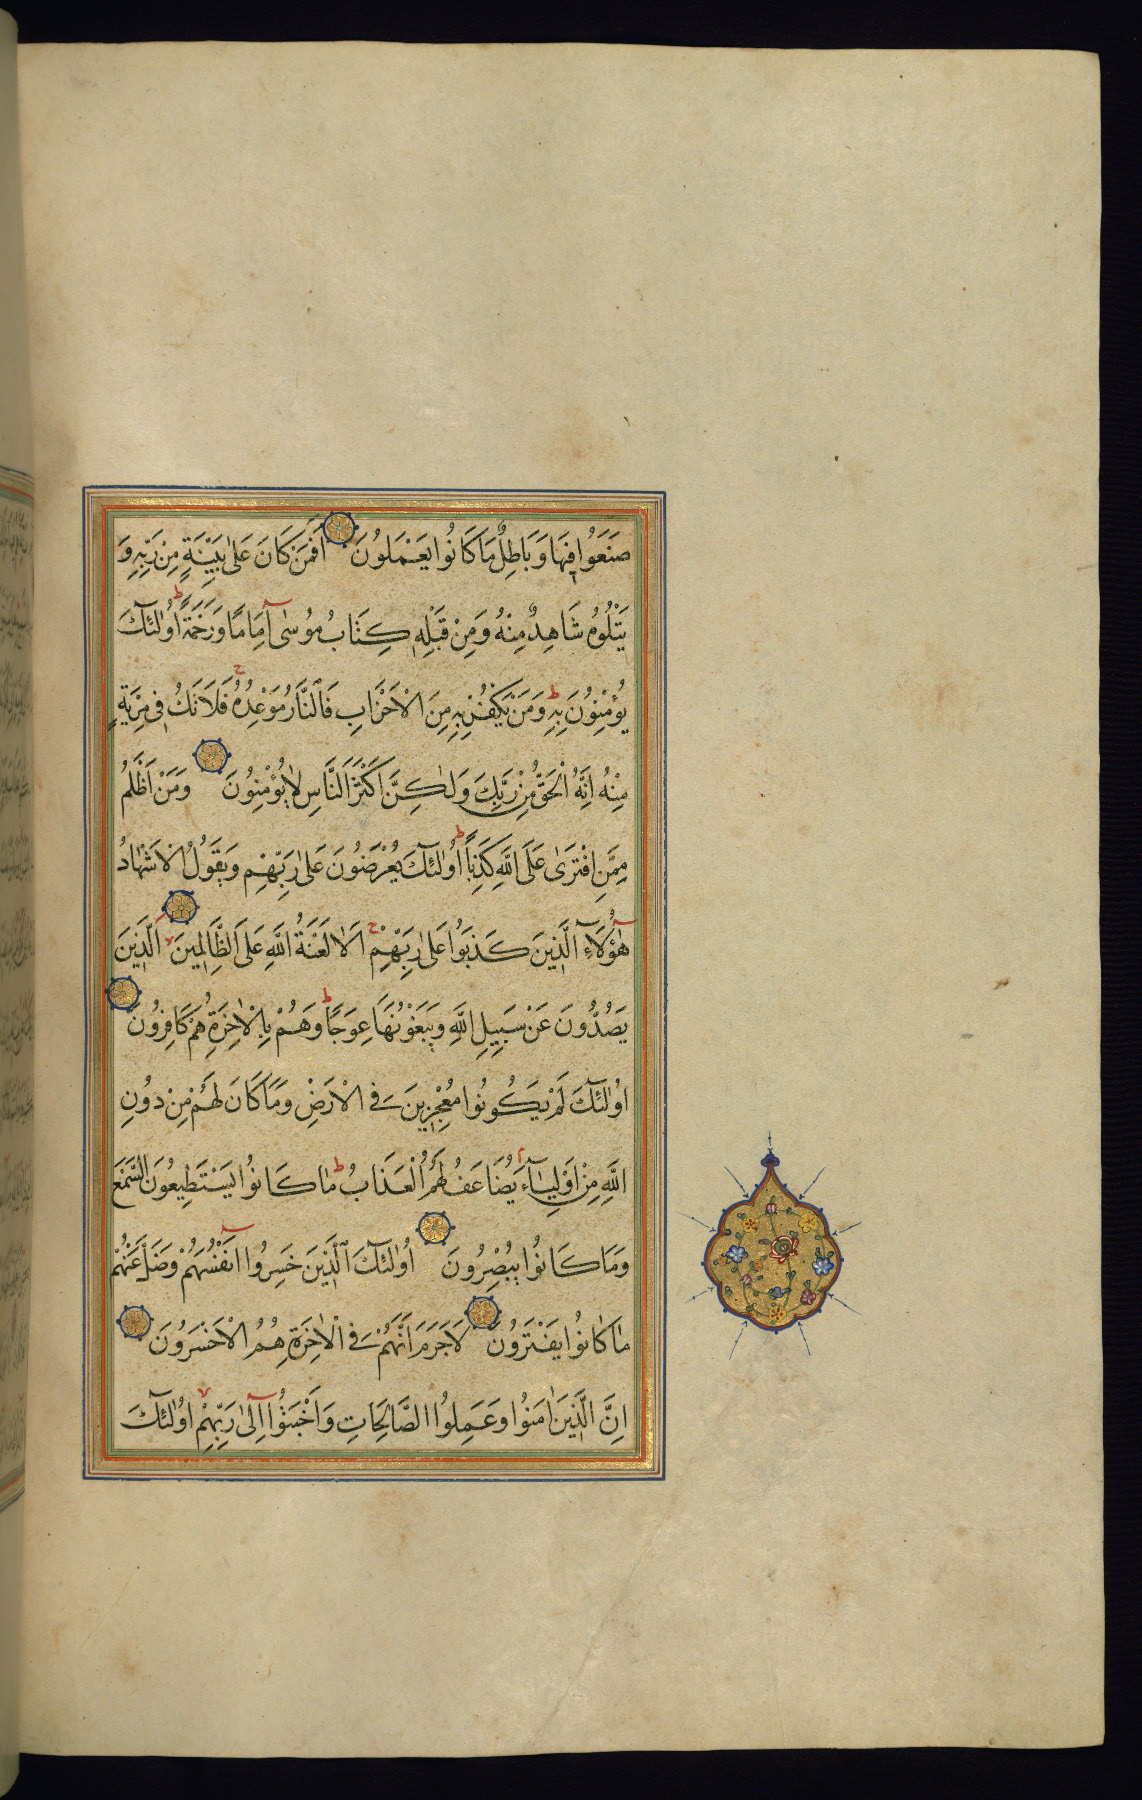 صَنَعُوا فِيهَا وَبَاطِلٌ مَا كَانُوا يَعْمَلُونَ اَفَمَنْ كَانَ عَلٰى بَيِّنَةٍ مِنْ رَبِّهِ وَ
يَتْلُوهُ شَاهِدٌ مِنْهُ وَمِنْ قَبْلِهِ كِتَابُ مُوسٰى اِمَامًا وَرَحْمَةً ط اُولٰئِكَ
يُؤْمِنُونَ بِهِ ط وَمَنْ يَكْفُرْ بِهِ مِنَ الْاَحْزَابِ فَالنَّارُ مَوْعِدُهُ ج فَلَا تَكُ فِى مِرْيَةٍ
مِنْهُ اِنَّهُ الْحَقُّ مِنْ رَبِّكَ وَلٰكِنَّ اَكْثَرَ النَّاسِ لَا يُؤْمِنُونَ وَمَنْ اَظْلَمُ
مِمَّنِ افْتَرٰى عَلَى اللّٰهِ كَذِبًا ط اُولٰئِكَ يُعْرَضُونَ عَلٰى رَبِّهِمْ وَيَقُولُ الْاَشْهَادُ
هٰؤُلَاءِ الَّذِينَ كَذَبُوا عَلٰى رَبِّهِمْ ج اَلَا لَعْنَةُ اللّٰهِ عَلَى الظَّالِمِينَ لا اَلَّذِينَ
يَصُدُّونَ عَنْ سَبِيلِ اللّٰهِ وَيَبْغُونَهَا عِوَجًا ط وَهُمْ بِالْاٰخِرَةِ هُمْ كَافِرُونَ
اُولٰئِكَ لَمْ يَكُونُوا مُعْجِزِينَ فِى الْاَرْضِ وَمَا كَانَ لَهُمْ مِنْ دُونِ
اللّٰهِ مِنْ اَوْلِيَاءَ م يُضَاعَفُ لَهُمُ الْعَذَابُ ط مَا كَانُوا يَسْتَطِيعُونَ السَّمْعَ
وَمَا كَانُوا يُبْصِرُونَ اُولٰئِكَ الَّذِينَ خَسِرُوا اَنْفُسَهُمْ وَضَلَّ عَنْهُمْ
مَا كَانُوا يَفْتَرُونَ لَا جَرَمَ اَنَّهُمْ فِى الْاٰخِرَةِ هُمُ الْاَخْسَرُونَ
اِنَّ الَّذِينَ اٰمَنُوا وَعَمِلُوا الصَّالِحَاتِ وَاَخْبَتُوا اِلٰى رَبِّهِمْ لا اُولٰئِكَ